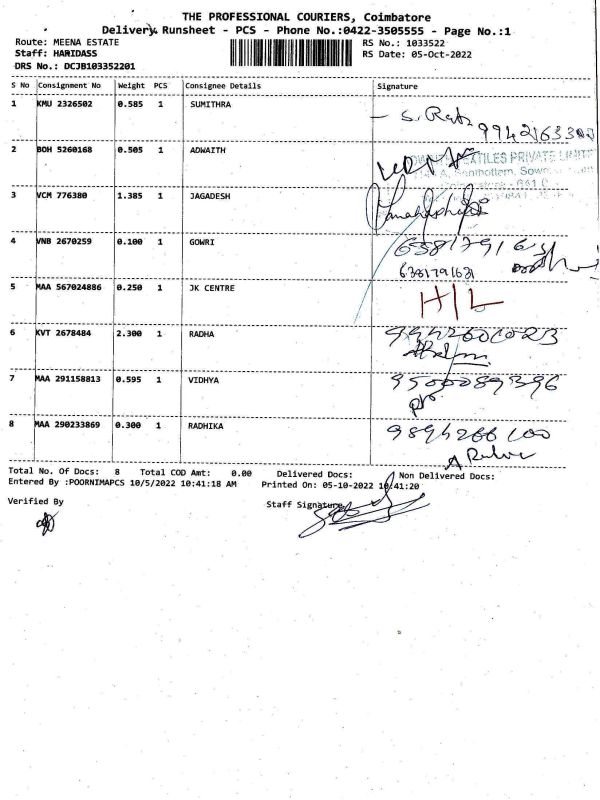 THE PROFESSIONAL COURIERS, Coimbatore
Delivery Runsheet - PCS - Phone No.:0422-3505555 - Page No.:1
Route: MEENA ESTATE RS No.: 1033522
Staff: HARIDASS RS Date: 05-Oct-2022
DRS No.: DCJB103352201
S No Consignment No Weight PCS Consignee Details Signature
1 KMU 2326502 0.585 1 SUMITHRA
2 BOH 5260168 0.505 1 ADWAITH
TEXTILES PRIVATE LIMITED
3 VCM 776380 1.385 1 JAGADESH
4 VNB 2670259 0.100 1 GOWRI
6381791631
5 MAA 567024886 0.250 1 JK CENTRE H/L
6 KVT 2678484 2.300 1 RADHA
7 MAA 291158813 0.595 1 VIDHYA 9500089396
8 MAA 290233869 0.300 1 RADHIKA 9894266100
Total No. Of Docs: 8 Total COD Amt: 0.00 Delivered Docs: Non Delivered Docs:
Entered By :POORNIMAPCS 10/5/2022 10:41:18 AM Printed On: 05-10-2022 10:41:20
Verified By Staff Signature